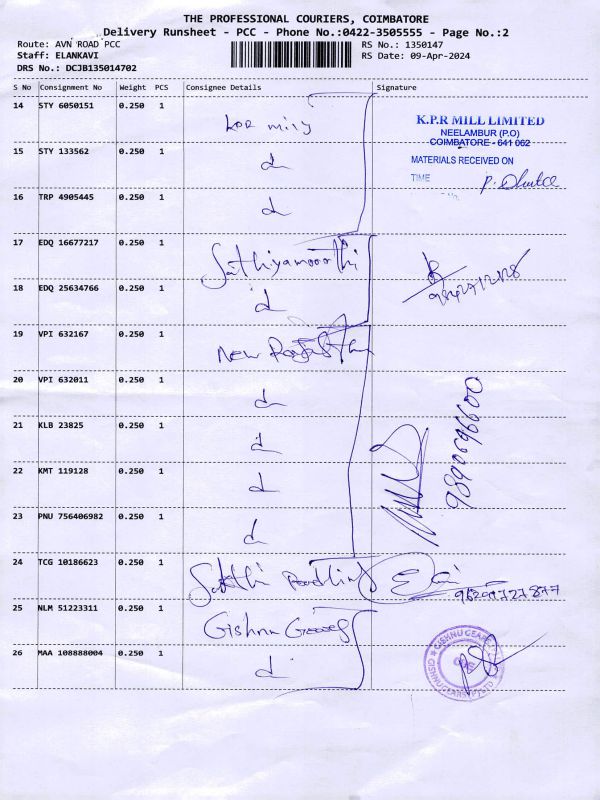 THE PROFESSIONAL COURIERS, COIMBATORE
Delivery Runsheet - PCC - Phone No.:0422-3505555 - Page No.:2
Route: AVN ROAD PCC
RS No.: 1350147
Staff: ELANKAVI
RS Date: 09-Apr-2024
DRS No.: DCJB135014702
S No Consignment No Weight PCS Consignee Details Signature
14 STY 6050151 0.250 1
K.P.R MILL LIMITED
NEELAMBUR (P.O)
COIMBATORE - 641 062
15 STY 133562 0.250 1
MATERIALS RECEIVED ON
TIME
16 TRP 4905445 0.250 1
17 EDQ 16677217 0.250 1 Sathiyamoorthi
18 EDQ 25634766 0.250 1
19 VPI 632167 0.250 1 New
20 VPI 632011 0.250 1
21 KLB 23825 0.250 1
22 KMT 119128 0.250 1
23 PNU 756406982 0.250 1
24 TCG 10186623 0.250 1
25 NLM 51223311 0.250 1 Gishnu
26 MAA 108888004 0.250 1